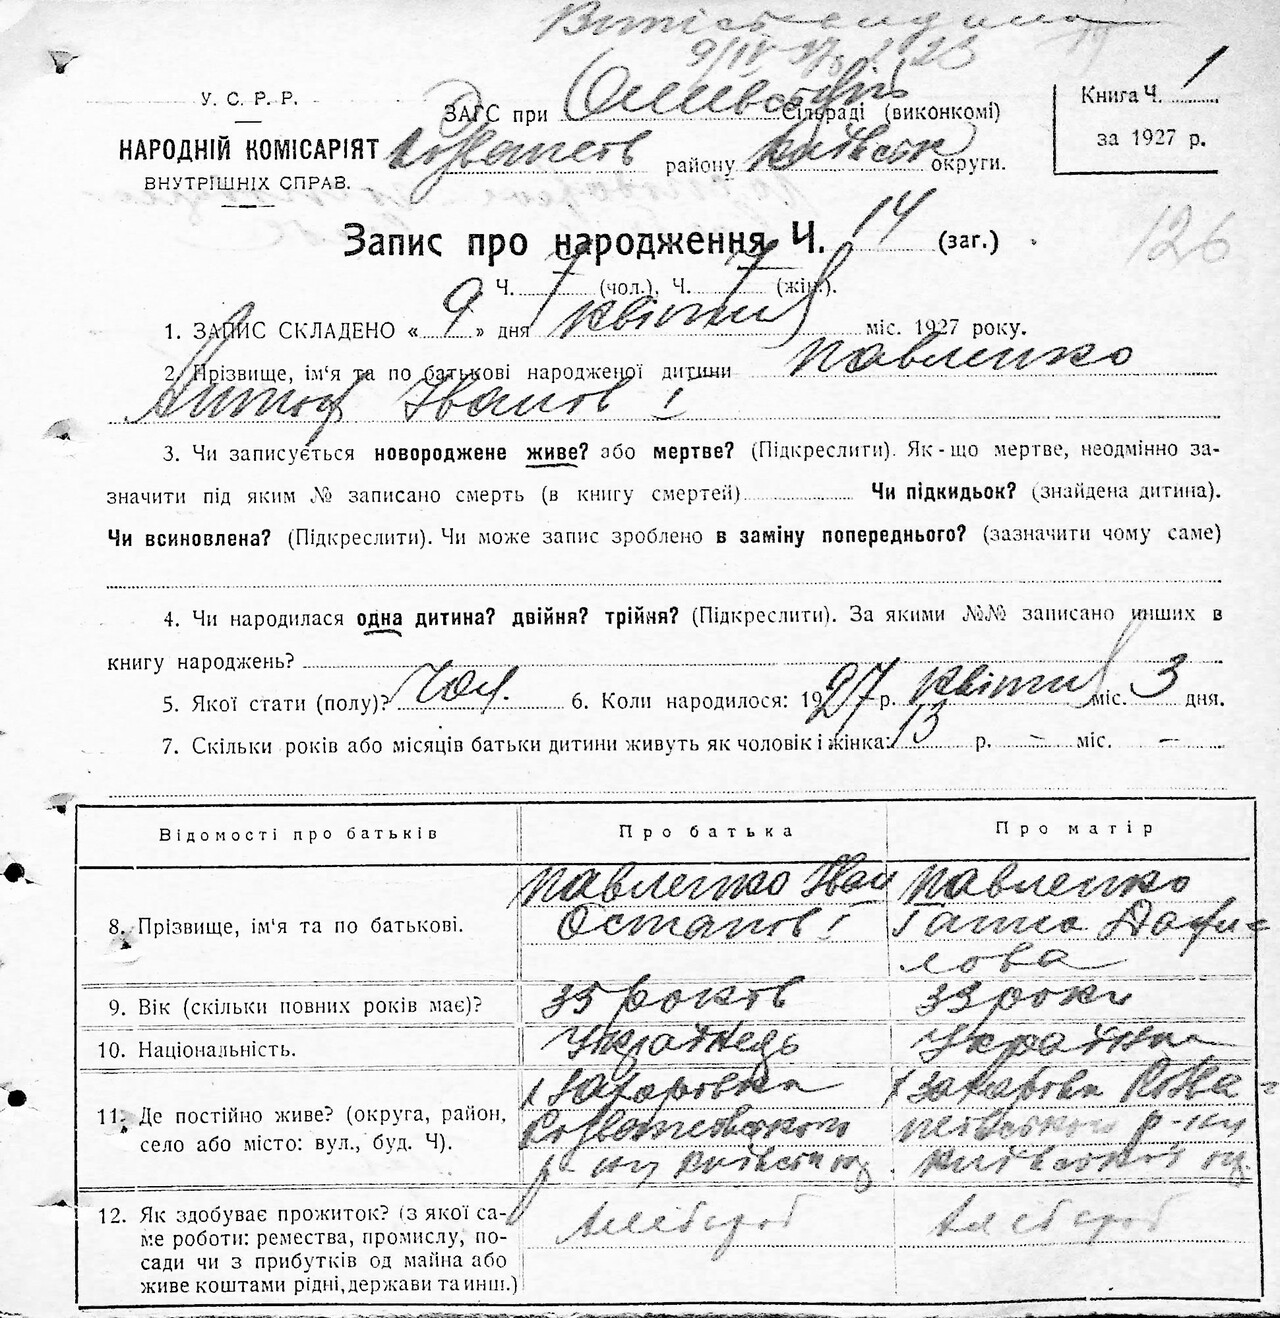 У. С. Р. Р.
НАРОДНІЙ КОМІСАРІЯТ
ВНУТРІШНІХ СПРАВ.
ЗАГС при Сільраді (виконкомі)
району Київськ округи.
Книга Ч. 1
за 1927 р.
Запис про народження Ч. 14 (заг.)
126
Ч. 7 (чол.), Ч. 7 (жін.).
1. ЗАПИС СКЛАДЕНО « 9 » дня квітня міс. 1927 року.
2. Прізвище, ім'я та по батькові народженої дитини Павленко
Антон Іванов
3. Чи записується новороджене живе? або мертве? (Підкреслити). Як-що мертве, неодмінно за-
значити під яким № записано смерть (в книгу смертей) Чи підкидьок? (знайдена дитина).
Чи всиновлена? (Підкреслити). Чи може запис зроблено в заміну попереднього? (зазначити чому саме)
4. Чи народилася одна дитина? двійня? трійня? (Підкреслити). За якими №№ записано инших в
книгу народжень?
5. Якої стати (полу)? Чол. 6. Коли народилося: 1927 р. квітня міс. 3 дня.
7. Скільки років або місяців батьки дитини живуть як чоловік і жінка: 13 р. – міс. –
Відомості про батьків Про батька Про матір
8. Прізвище, ім'я та по батькові.
Павленко Іван
Остапов
Павленко
Ганна
лова
9. Вік (скільки повних років має)? 35 років 33 роки
10. Національність. Українець Українка
11. Де постійно живе? (округа, район,
село або місто: вул., буд. Ч).
х Захарівка
р-ну Київськ ок
х Захарівка
р-ну
Київської ок
12. Як здобуває прожиток? (з якої са-
ме роботи: ремества, промислу, по-
сади чи з прибутків од майна або
живе коштами рідні, держави та инш.)
Хлібороб
Хлібороб